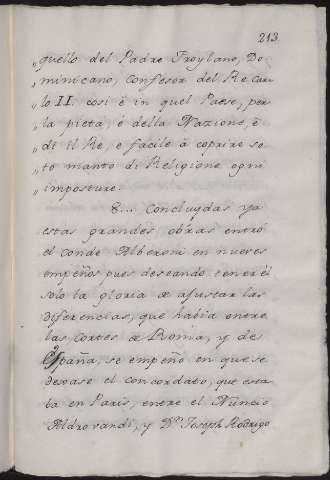 213
„ quello del Padre Froylano, Do
„ minicano, Confesor del Re Car
„ lo II. così è in quel Paese, per
„ la pietà, è della Nazione, è
„ di il Re, e facile à coprire so
„ to manto di Religione ogni
„ imposture.
8... Concluydas ya
estas grandes obras entró
el conde Alberoni en nueves
empeños pues deseando tener èl
solo la gloria de ajustar las
diferencias, que havia entre
las cortes de Roma, y de
España, se empeño en que se
el concordato, que esta
ba en Paris, entre el Nuncio
Aldrovandi, y Dn. Joseph Rodrigo